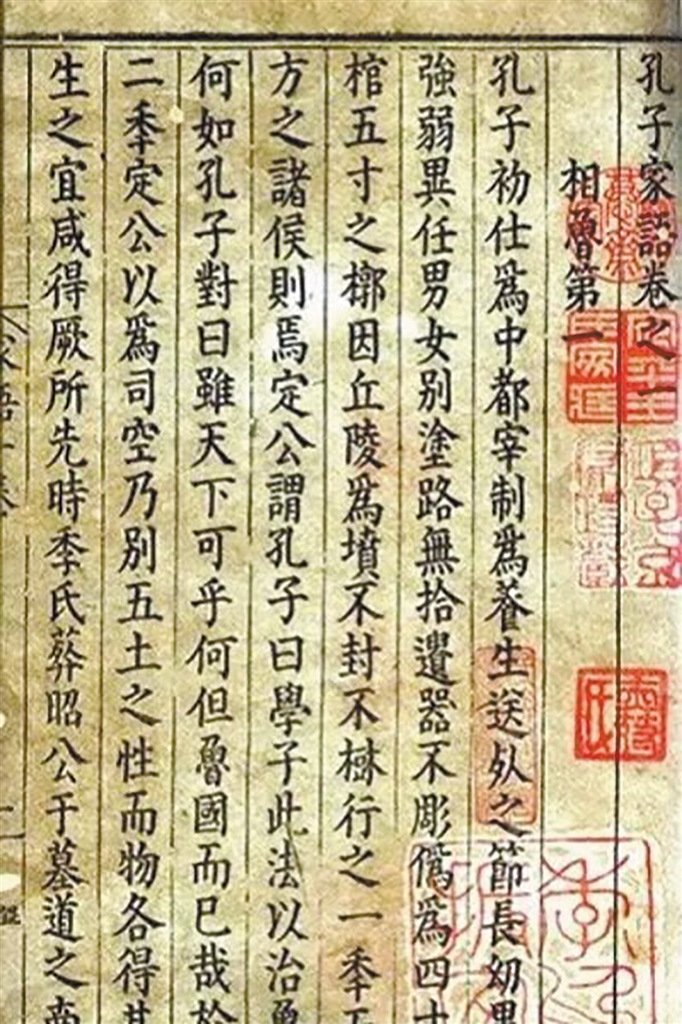 孔子家語卷之一
相魯第一
孔子初仕爲中都宰制爲養生送死之節長幼異
強弱異任男女別塗路無拾遺器不彫僞爲四寸
棺五寸之槨因丘陵爲墳不封不樹行之一秊
方之諸侯則焉定公謂孔子曰學子此法以治魯
何如孔子對曰雖天下可乎何但魯國而已哉於
二秊定公以爲司空乃別五土之性而物各得其
生之宜咸得厥所先時季氏葬昭公于墓道之南
家語卷